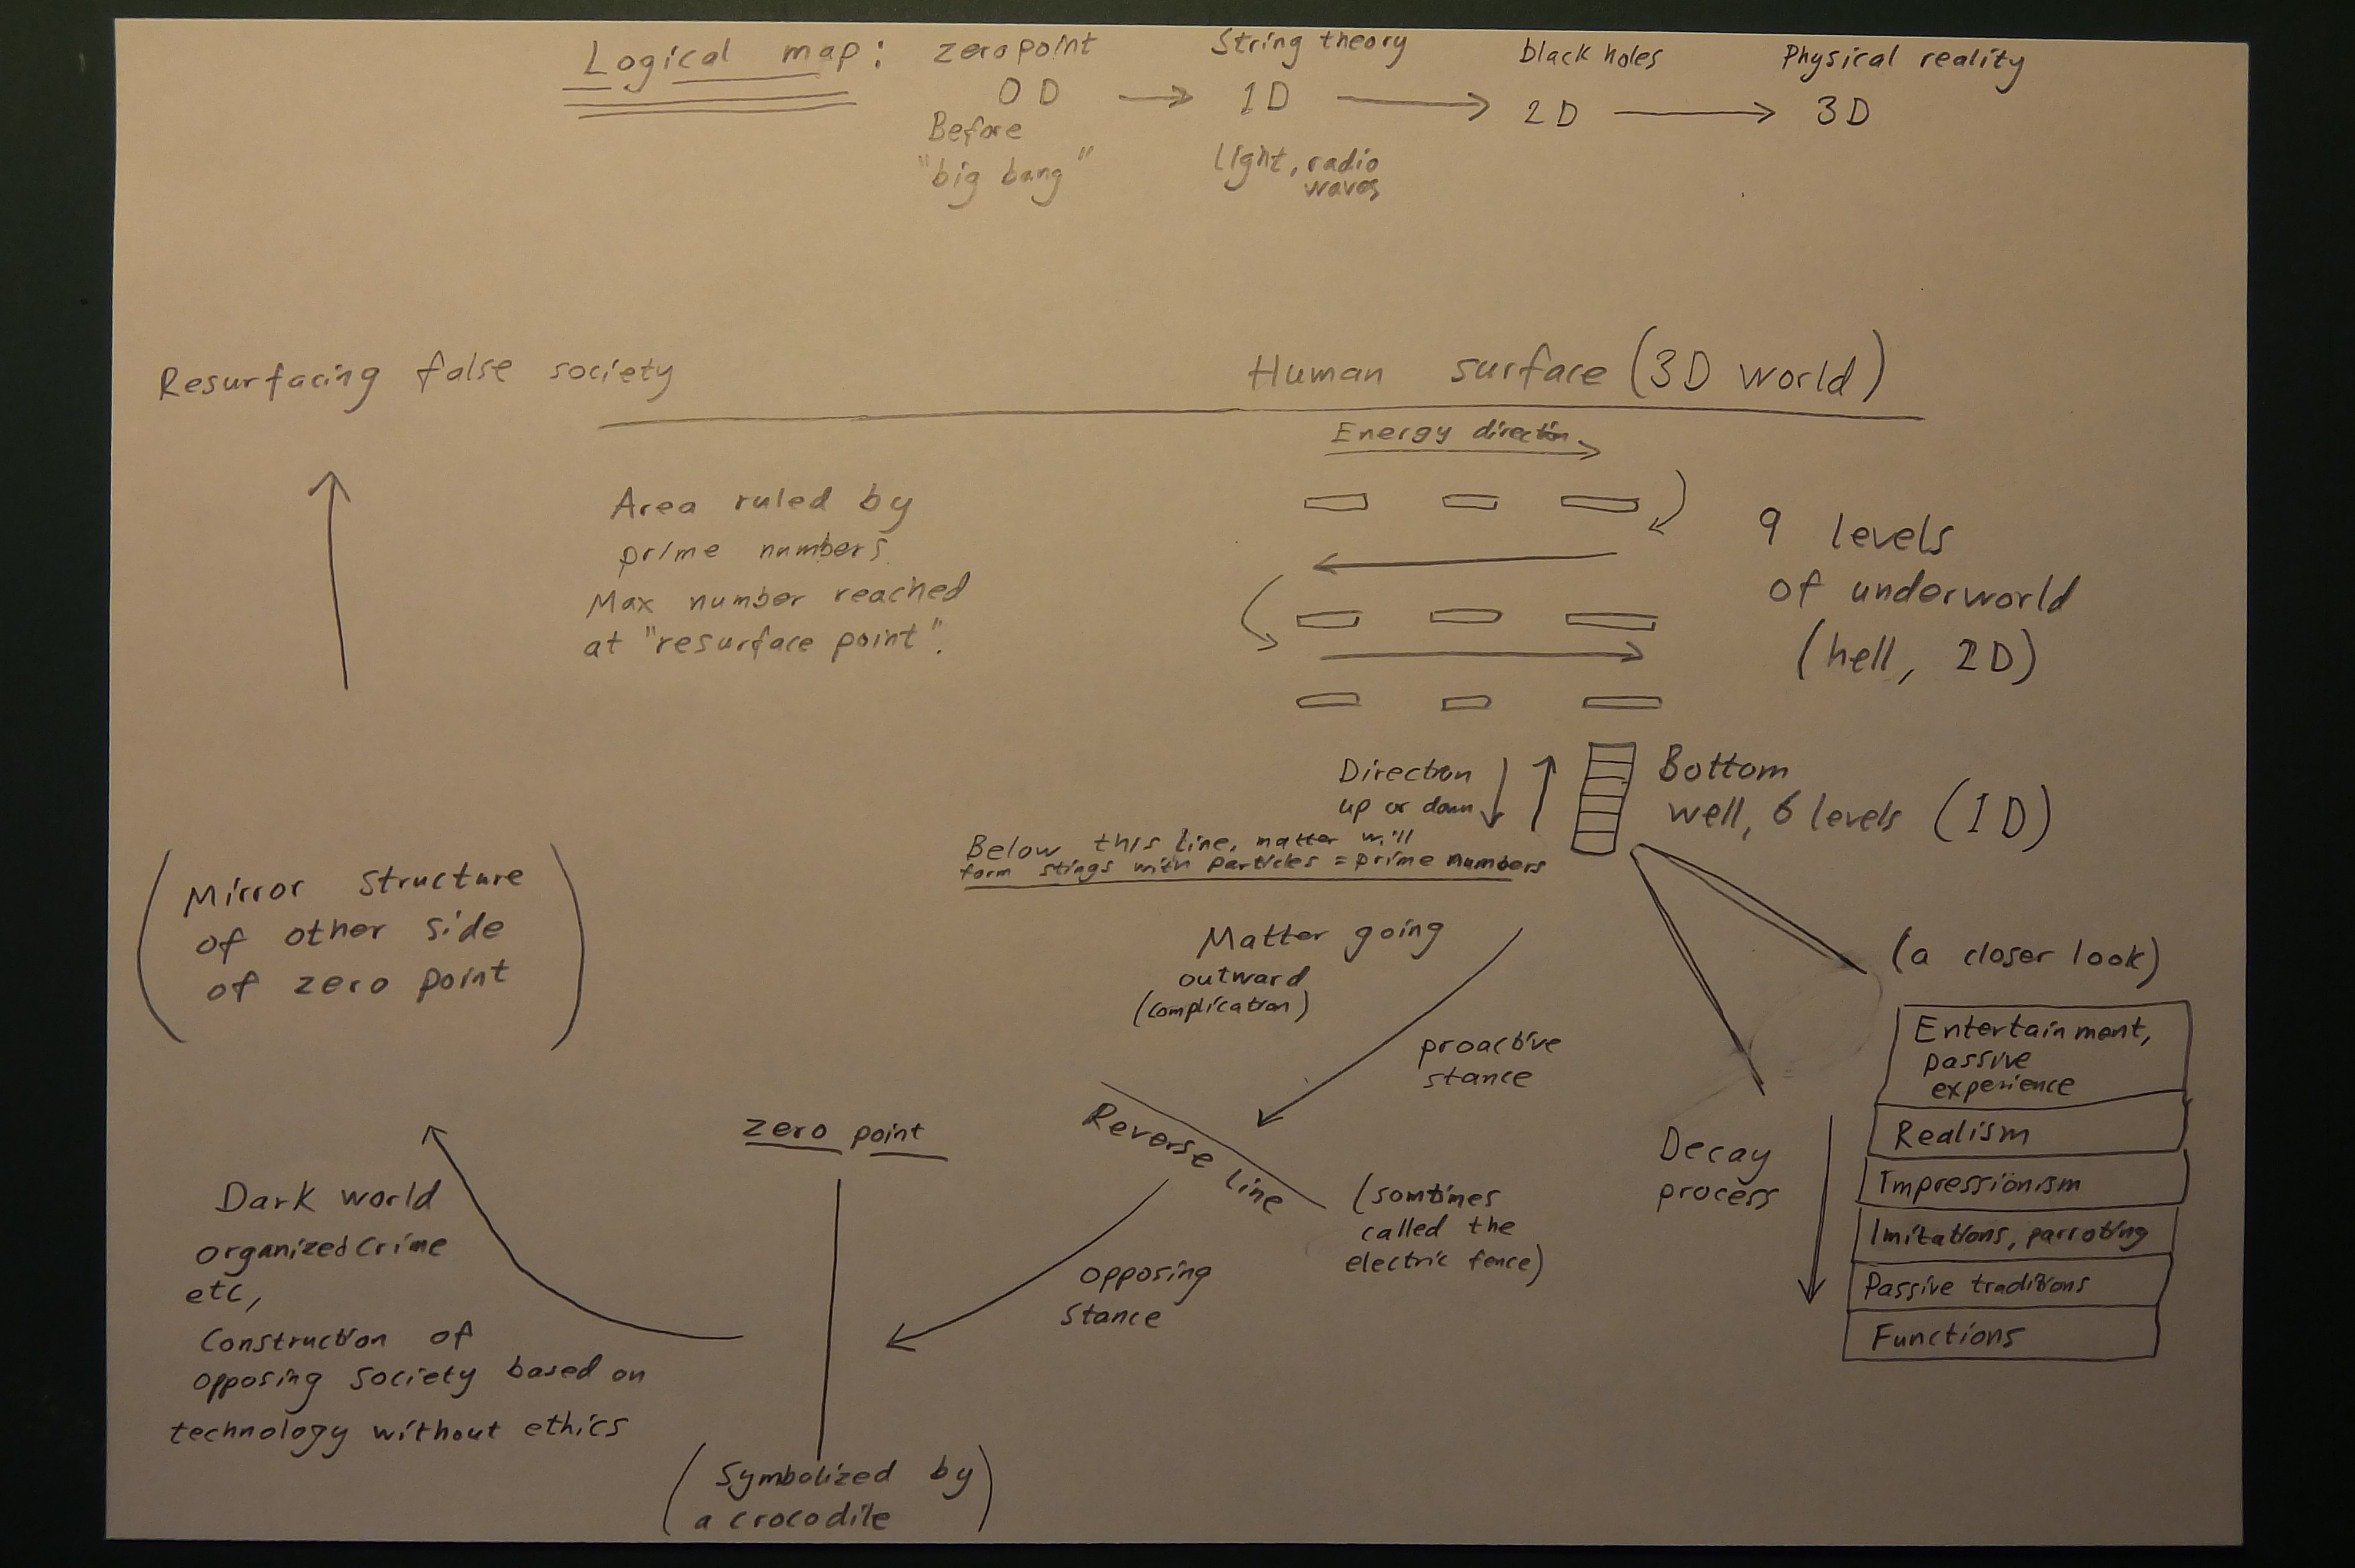 Logical map: zero point String theory black holes Physical reality
0D 1D 2D 3D
Before
"big bang"
light, radio
waves
Resurfacing false society
Human surface (3D world)
Energy direction
Area ruled by
prime numbers.
Max number reached
at "resurface point".
9 levels
of underworld
(hell, 2D)
Direction
up or down
Bottom
well, 6 levels (1D)
Below this line, matter will
form stings with particles = prime numbers
(Mirror structure
of other side
of zero point)
Matter going
outward
(complication)
proactive
stance
(a closer look)
Entertainment,
passive
experience
Realism
Impressionism
Imitations, parroting
Passive traditions
Functions
Decay
process
Reverse line
(somtimes
called the
electric fence)
zero point
opposing
stance
Dark world
organized crime
etc,
Construction of
opposing society based on
technology without ethics
(Symbolized by
a crocodile)